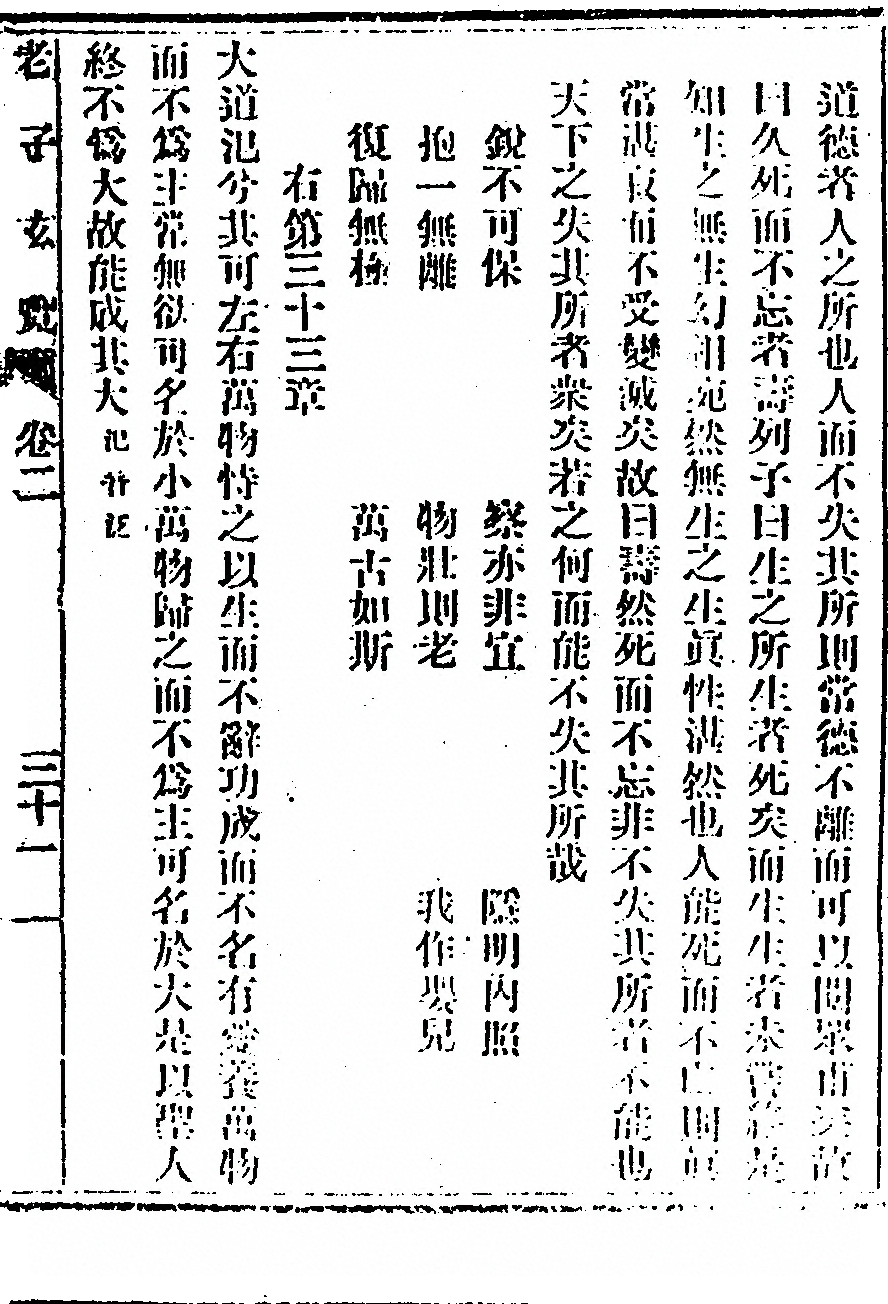 道德者人之所也人而不失其所則常德不離而可以閱眾甫矣故
曰久死而不忘者壽列子曰生之所生者死矣而生生者未嘗終是
知生之無生幻相宛然無生之生眞性湛然也人能死而不亡則眞
常湛寂而不受變滅矣故曰壽然死而不忘非不失其所者不能也
天下之失其所者衆矣若之何而能不失其所哉
銳不可保 察亦非宜 隱明內照
抱一無離 物壯則老 我作嬰兒
復歸無極 萬古如斯
右第三十三章
大道氾兮其可左右萬物恃之以生而不辭功成而不名有愛養萬物
而不爲主常無欲可名於小萬物歸之而不爲主可名於大是以聖人
終不爲大故能成其大氾音泛
老子玄覽 卷二 三十一